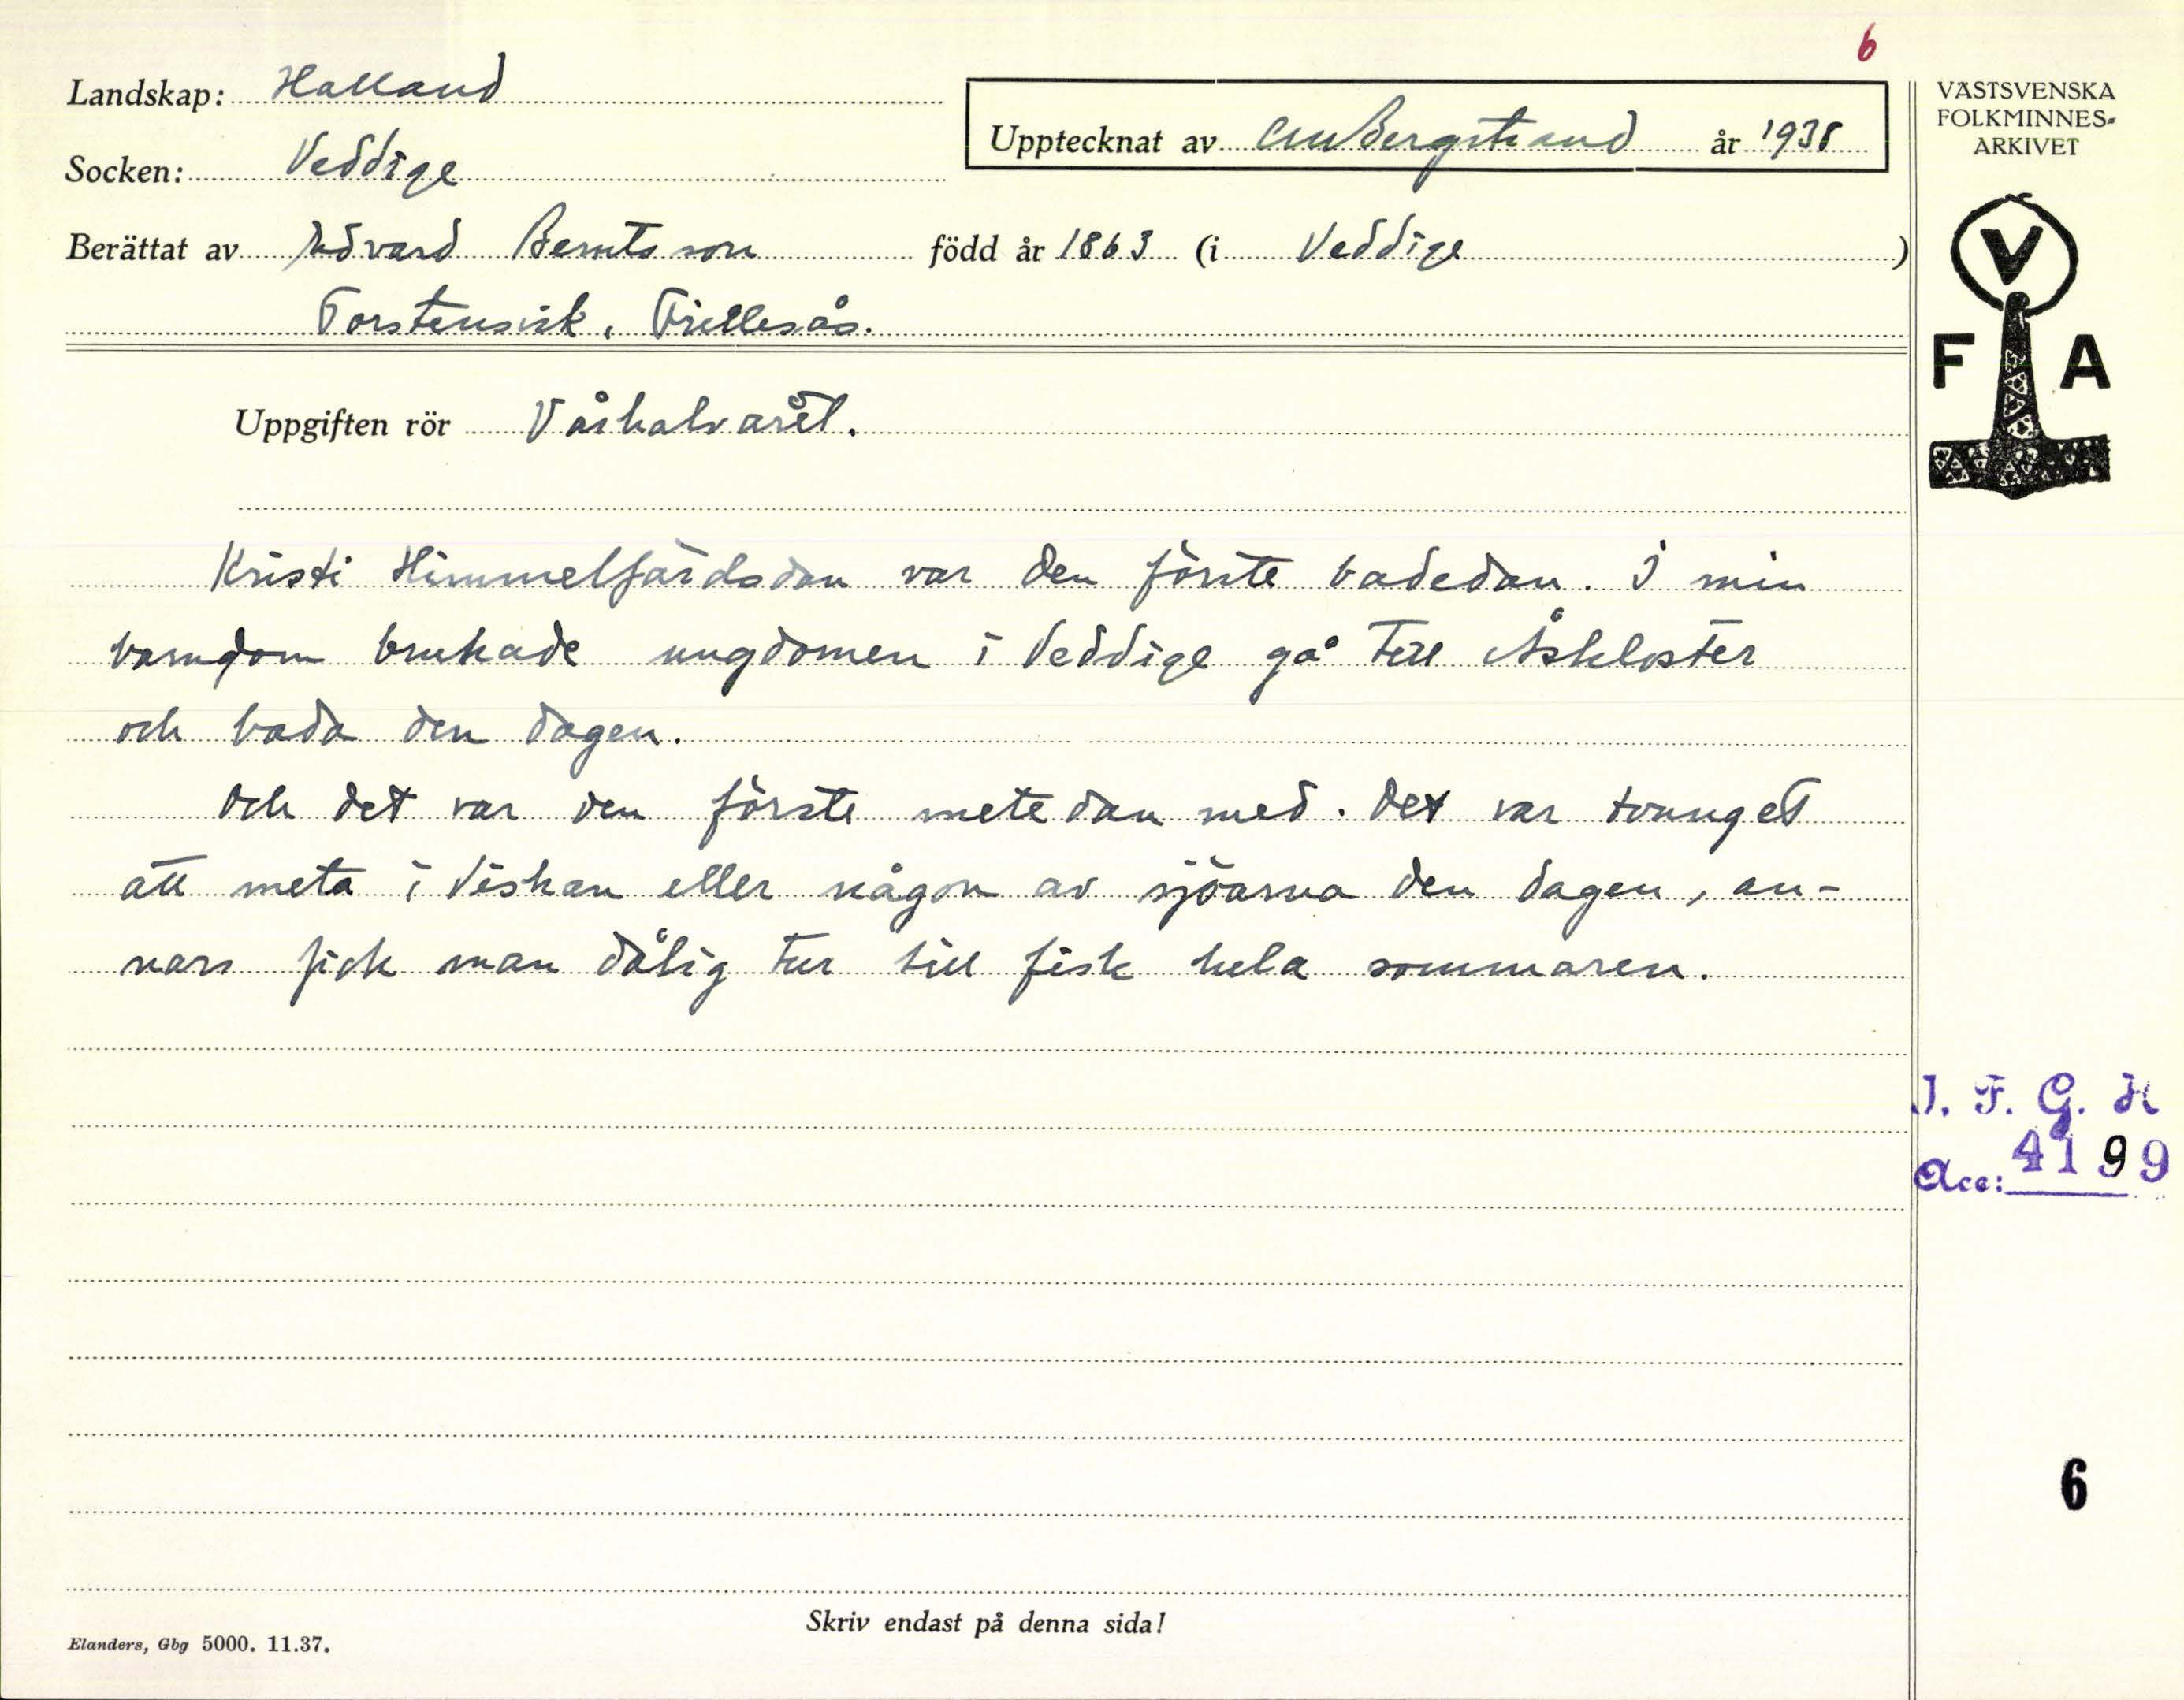 6
Landskap: Halland
Socken: Veddige
Upptecknat av CMBergstrand år 1938
Berättat av Edvard Berntsson född år 1863 (i Veddige)
Torstensvik, Frillesås.
Uppgiften rör Vårhalvåret.
Kristi Himmelfärdsdan var den förste badedan. I min
barndom brukade ungdomen i Veddige gå till Åskloster
och bada den dagen.
Och det var den förste metedan med. Det var tvunget
att meta i Viskan eller någon av sjöarna den dagen, an-
nars fick man dålig tur till fisk hela sommaren.
VÄSTSVENSKA
FOLKMINNES-
ARKIVET
V
F A
I. F. G. H
Acc: 4199
6
Skriv endast på denna sida!
Elanders, Gbg 5000. 11.37.